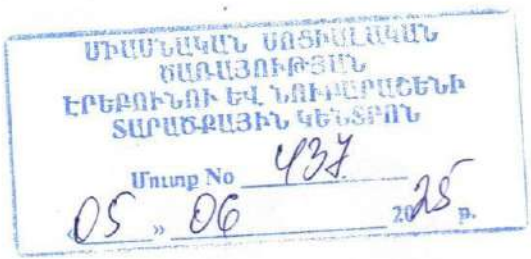 ՄԻԱՍՆԱԿԱՆ ՍՈՑԻԱԼԱԿԱՆ
ԾԱՌԱՅՈՒԹՅԱՆ
ԷՐԵԲՈՒՆՈՒ ԵՎ ՆՈՒԲԱՐԱՇԵՆԻ
ՏԱՐԱԾՔԱՅԻՆ ԿԵՆՏՐՈՆ
Մուտք No 437
«05» 06 2025 թ.